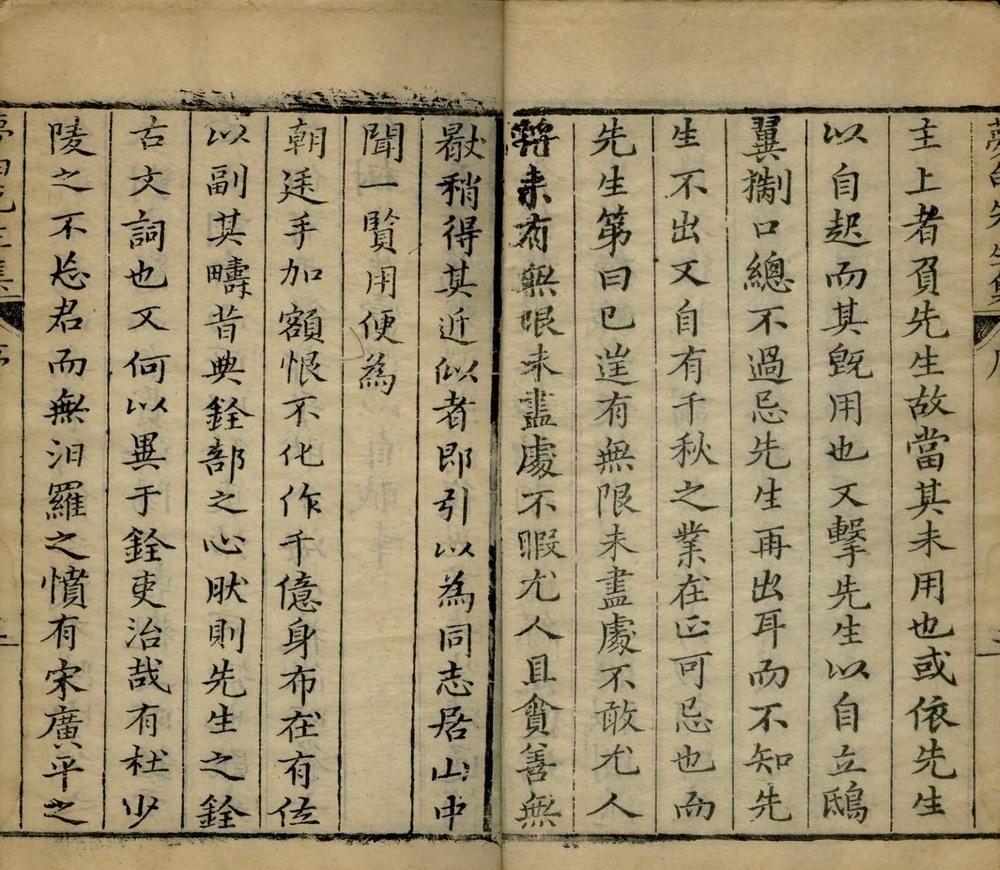 主上者負先生故當其未用也或依先生
以自起而其既用也又擊先生以自立鴟
翼掣口總不過忌先生再出耳而不知先
生不出又自有千秋之業在正可忌也而
先生第曰已迋有無限未盡處不敢尤人
將来有無限未盡處不暇尤人且貪善無
厭稍得其近似者即引以為同志居山中
聞一賢用便為
朝廷手加額恨不化作千億身布在有位
以副其疇昔典銓部之心肰則先生之銓
古文詞也又何以異于銓吏治哉有杜少
陵之不忘君而無汨羅之憤有宋廣平之